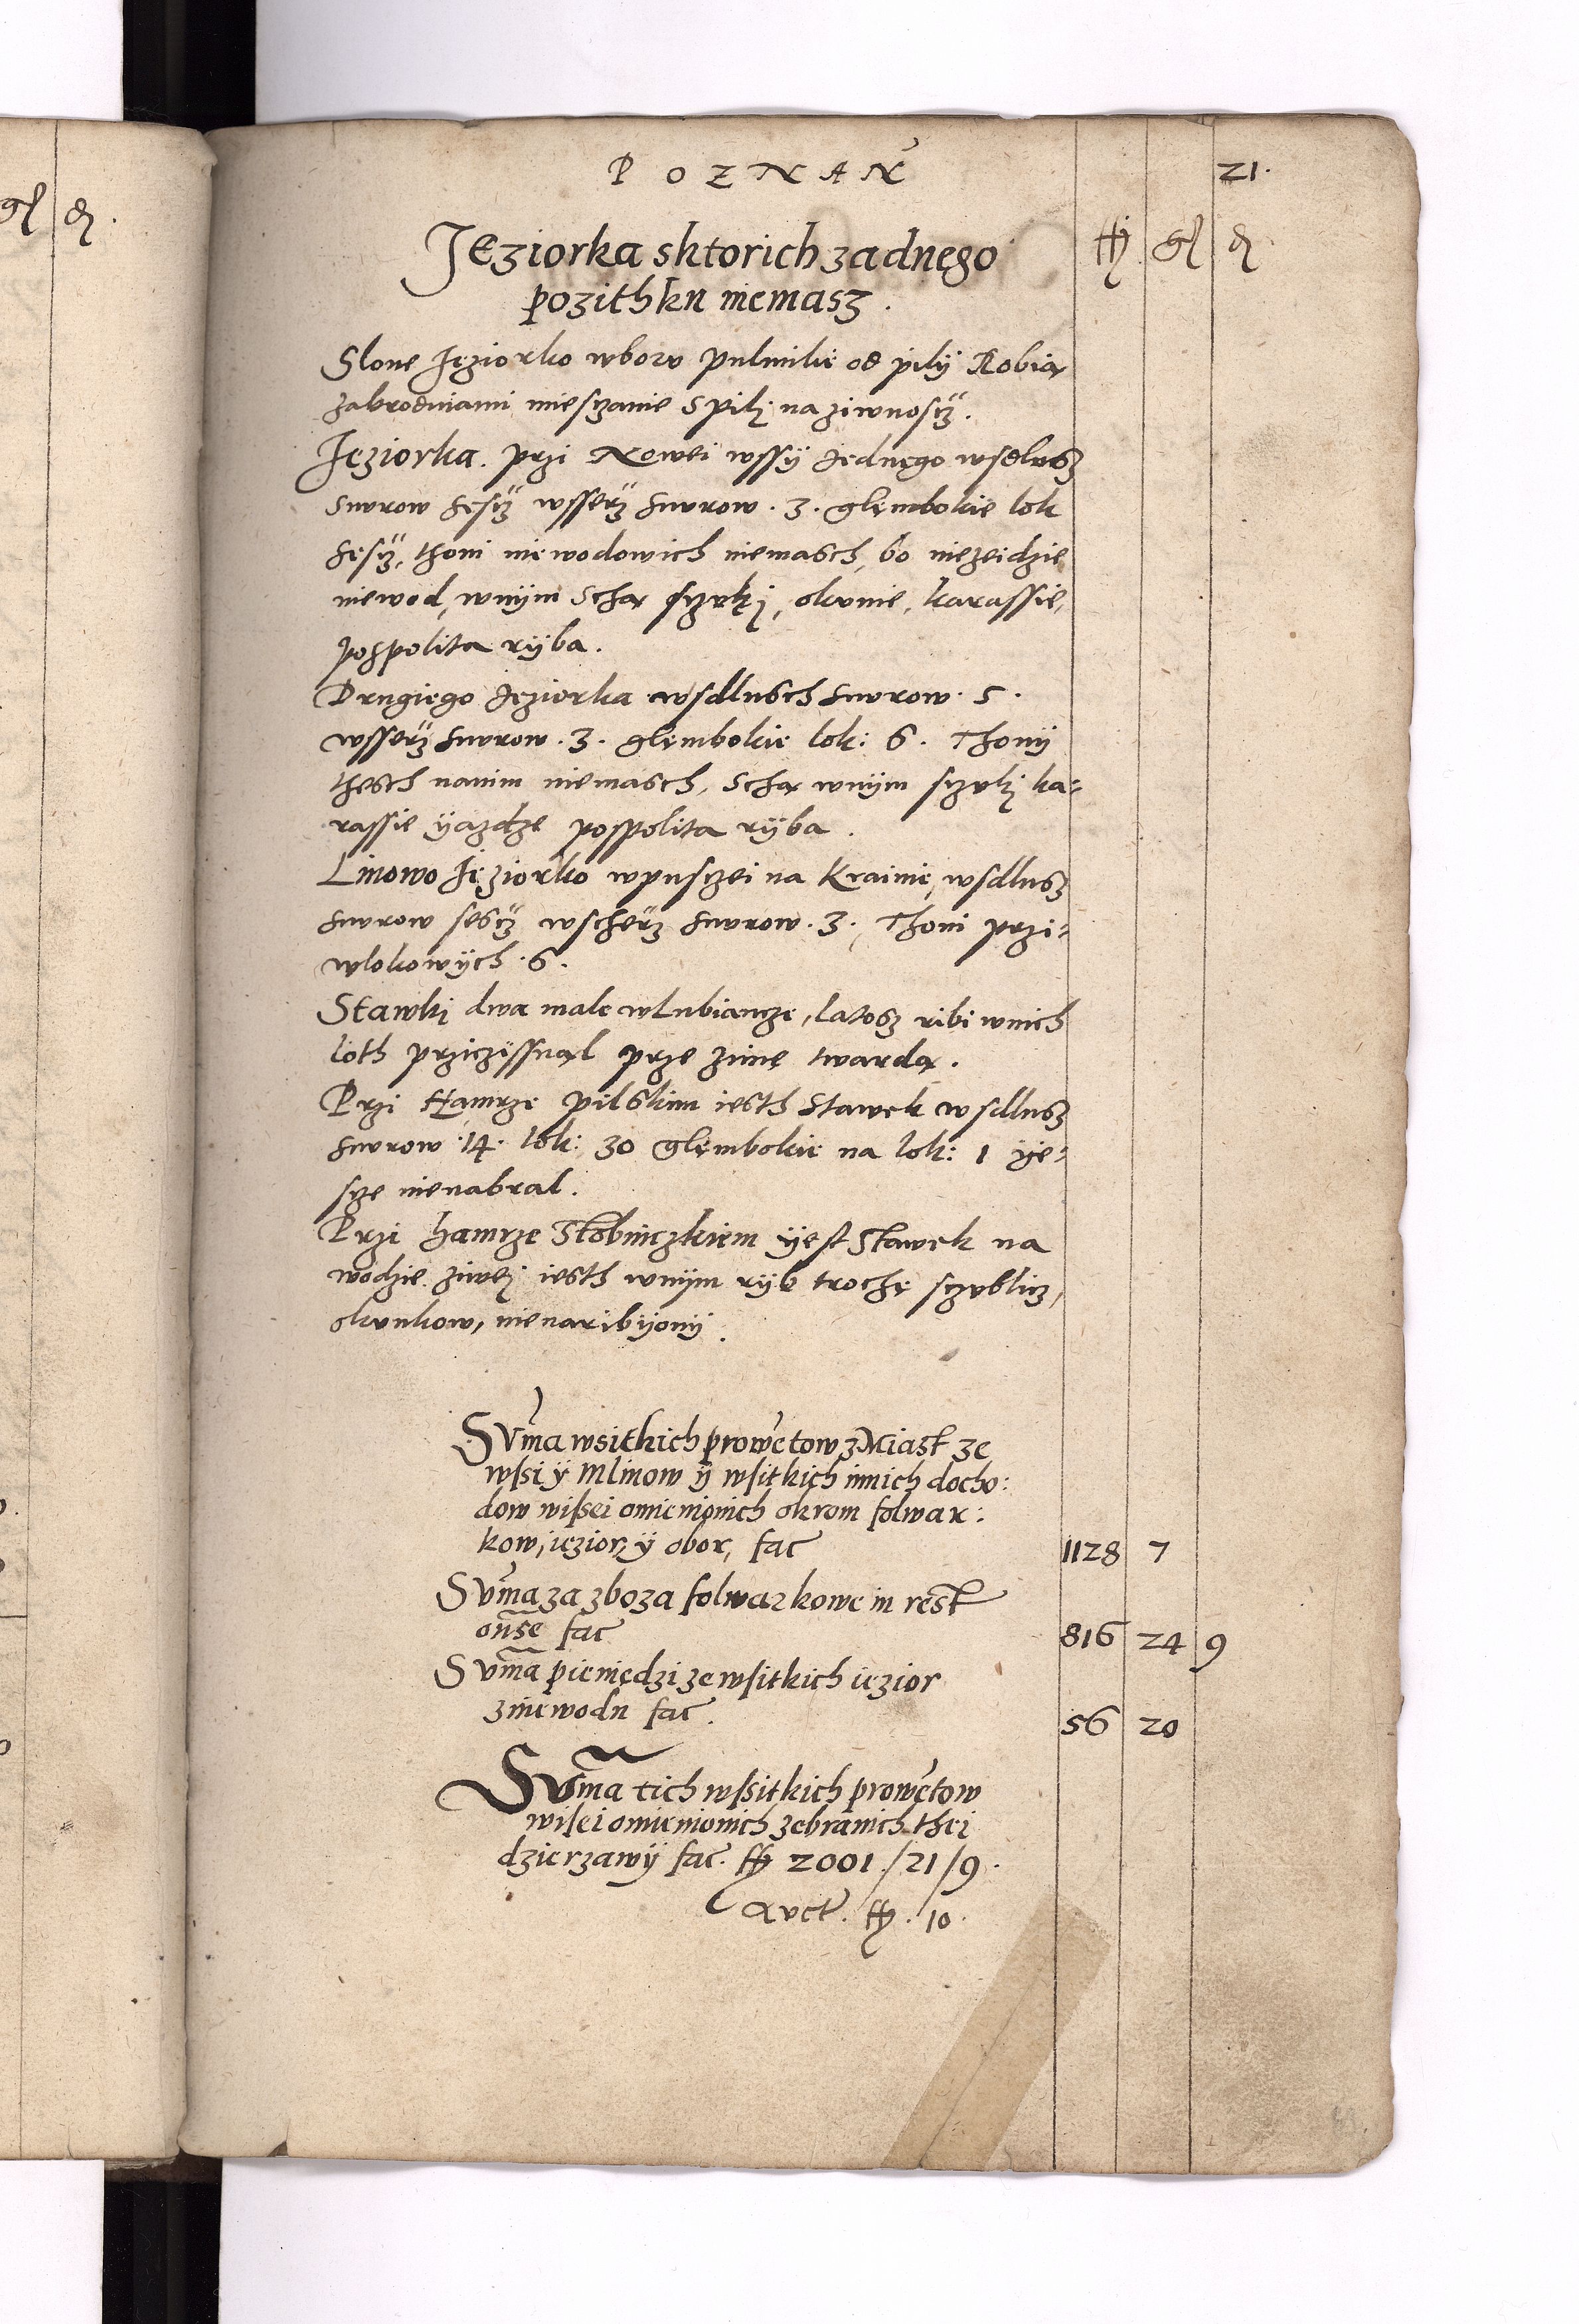 POZNAŃ
21.
Jeziorka sktorich zadnego
pozithku niemasz.
Slone Jeziorko wboru pulmilie od pily Robia
zabrodniami miesczanie s pily na ziwnoscz.
Jeziorka. przi Nowei wssÿ Jednego wsdlusz
snurow sescz wsserz snurow. 3. glembokie lok
sescz, thoni niewodowich niemasch, bo niezeidzie
niewod, wnÿm scha sczuki, okunie, karassie,
pospolita rÿba.
Drugiego Jeziorka wsdlusch snurow. 5.
wsserz snurow. 3. glembokie lok: 6. Thonÿ
thesch nanim niemasch, scha wnÿm sczuki ka-
rassie ÿazdze pospolita rÿba.
Linowo Jeziorko wpusczei na Krainie, wsdlusz
snurow sescz wscherz snurow. 3. Thoni przi-
wlokowÿch. 6.
Stawki dwa male wLubiancze, latosz ribi wnich
loth przicissnal prze zime twarda.
Przi Hamrze pilskim iesth Stawek wsdlusz
snurow. 14. lok: 30 glembokie na lok: 1 ÿe-
scze nienabral.
Przi hamrze Stobniczkiem ÿest Stawek na
wodzie ziwei iesth wnÿm rÿb troche sczublicz,
okunkow, nienaribÿonÿ.
Suma wsitkich prowetow z Miast ze
wsi ÿ Mlinow ÿ wsitkich innich docho:
dow wisei omienionich okrom folwar:
kow, iezior, ÿ obor, fac
1128 7
Suma za zboza folwarkowe in rest
onse fac
816 24 9
Suma pieniedzi ze wsitkich iezior
zniewodu fac.
56 20
Suma tich wssitkich prowetow
wisei omienionich zebranich thei
dzierzawÿ fac. ff 2001./21/9.
Auct. ff. 10.